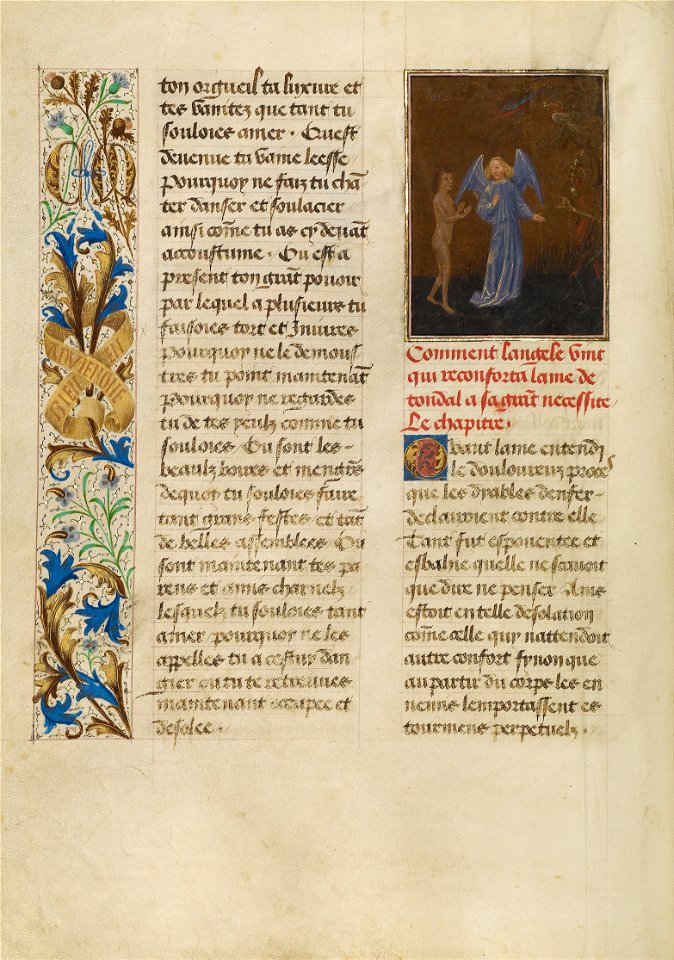 ton orgueil ta luxure et
tes vanitez que tant tu
souloies amer. Quest
devenue ta vaine leesse
Pourquoy ne faiz tu chã
ter danser et soulacier
ainsi cõme tu as cy devãt
acoustume. Ou est a
present ton grãt povoir
par lequel a plusieurs tu
faisoies tort et Iniures
Pourquoy ne le demous
tres tu point maintenãt
Pourquoy ne regardes
tu de tes yeulx comme tu
souloies. Ou sont les
beaulz boires et mengiers
dequoy tu souloies faire
tant grans festes et tãt
de belles assemblees. Ou
sont maintenant tes pa
rens et amis charnelz
lesquelz tu souloies tant
amer pourquoy ne les
appelles tu a cestui dan
gier ou tu te retreuves
maintenant et
desolee.
Comment langele vint
qui reconforta lame de
tondal a sa grãt necessite
Le chapitre.
Quant lame entendi
le douloureux proces
que les dyables denfer
declairoient contre elle
Tant fut espouentee et
esbahie quelle ne scavoit
que dire ne penser Ains
estoit en telle desolation
cõme celle quy nattendoit
autre confort synon que
au partir du corps les en
nemis lemportassent es
tourmens perpetuelz.